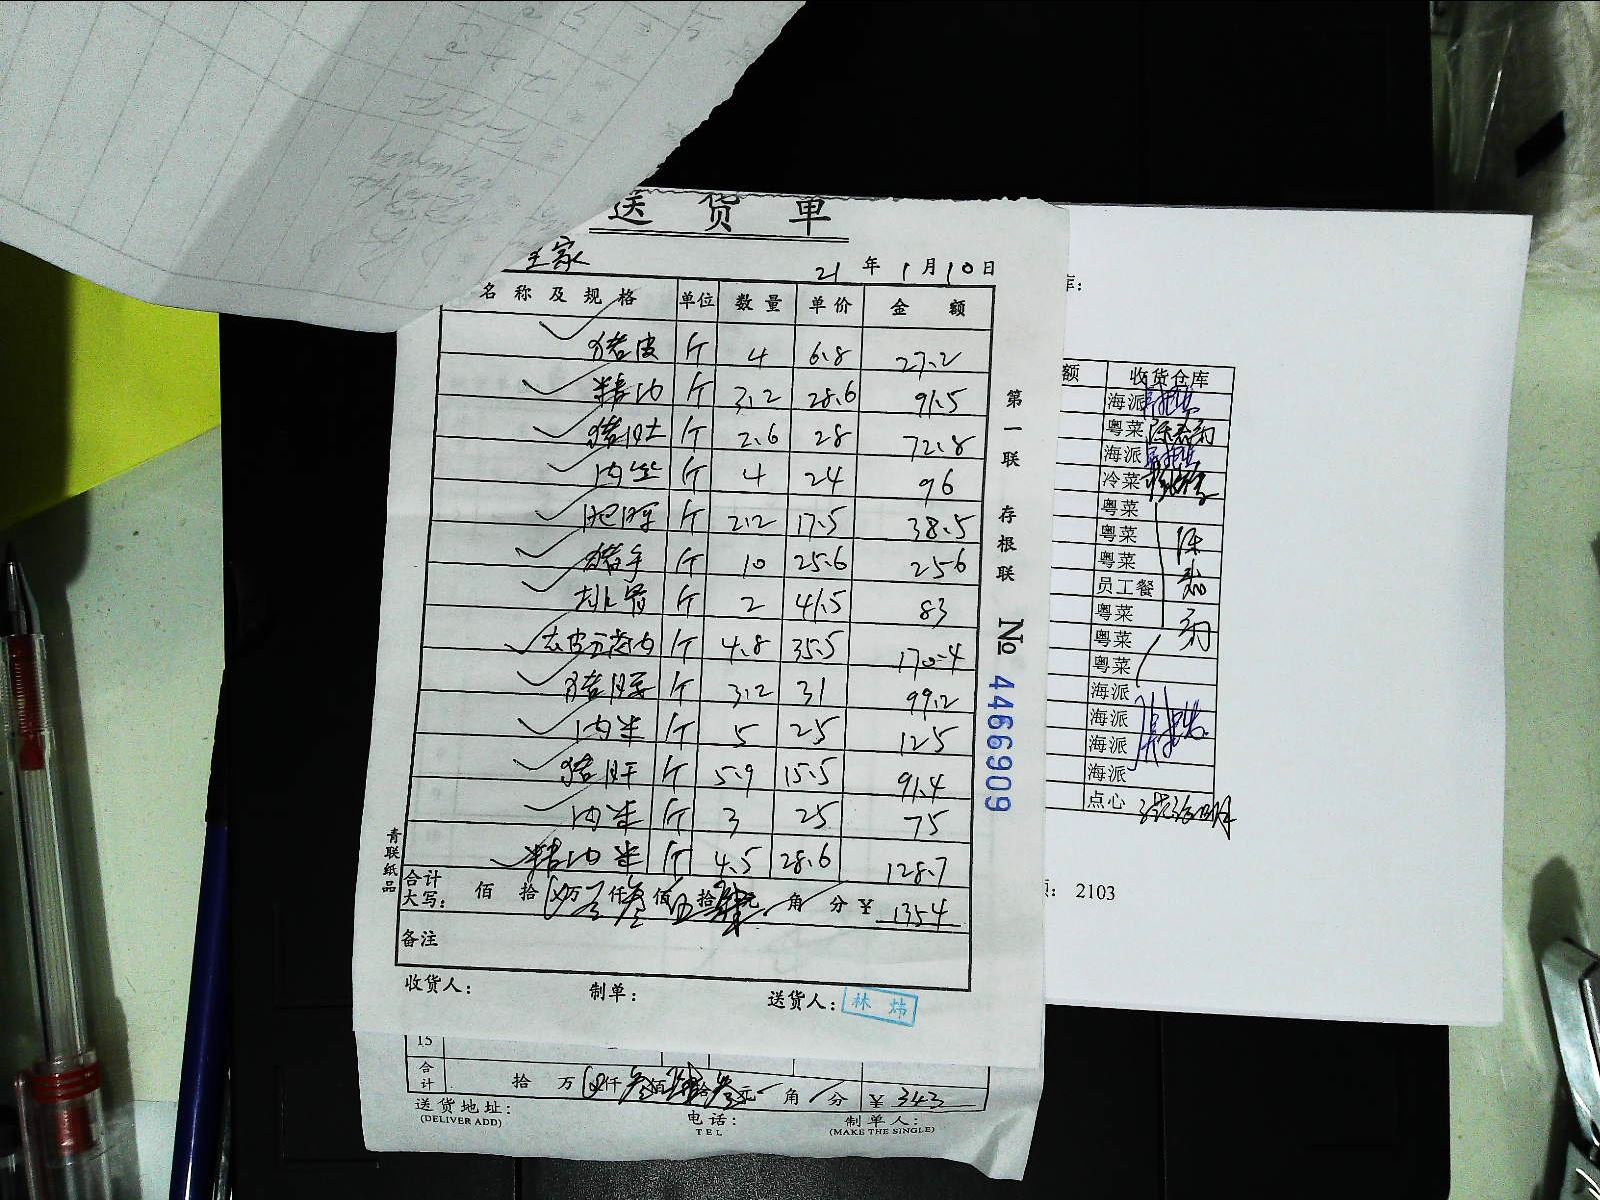 送货单
21年1月10日
名称及规格 单位 数量 单价 金额
猪皮 斤 4 6.8 27.2
精肉 斤 3.2 28.6 91.5
猪肚 斤 2.6 28 72.8
肉丝 斤 4 24 96
肥膘 斤 2.2 17.5 38.5
猪手 斤 10 25.6 256
大排骨 斤 2 41.5 83
去皮五花肉 斤 4.8 35.5 170.4
猪腰 斤 3.2 31 99.2
肉米 斤 5 25 125
猪肝 斤 5.9 15.5 91.4
肉米 斤 3 25 75
精肉米 斤 4.5 28.6 128.7
合计大写: 佰 拾 万 仟叁佰伍拾肆元 角 分 ¥ 1354
备注
收货人: 制单: 送货人: 林炜
青联纸品
第一联 存根联 № 4466909
15
合计 拾 万 仟叁佰肆拾叁元 角 分 ¥ 343
送货地址:
(DELIVER ADD)
电话:
TEL
制单人:
(MAKE THE SINGLE)
库:
额 收货仓库
海派
粤菜
海派
冷菜
粤菜
粤菜
粤菜
员工餐
粤菜
粤菜
粤菜
海派
海派
海派
海派
点心
2103